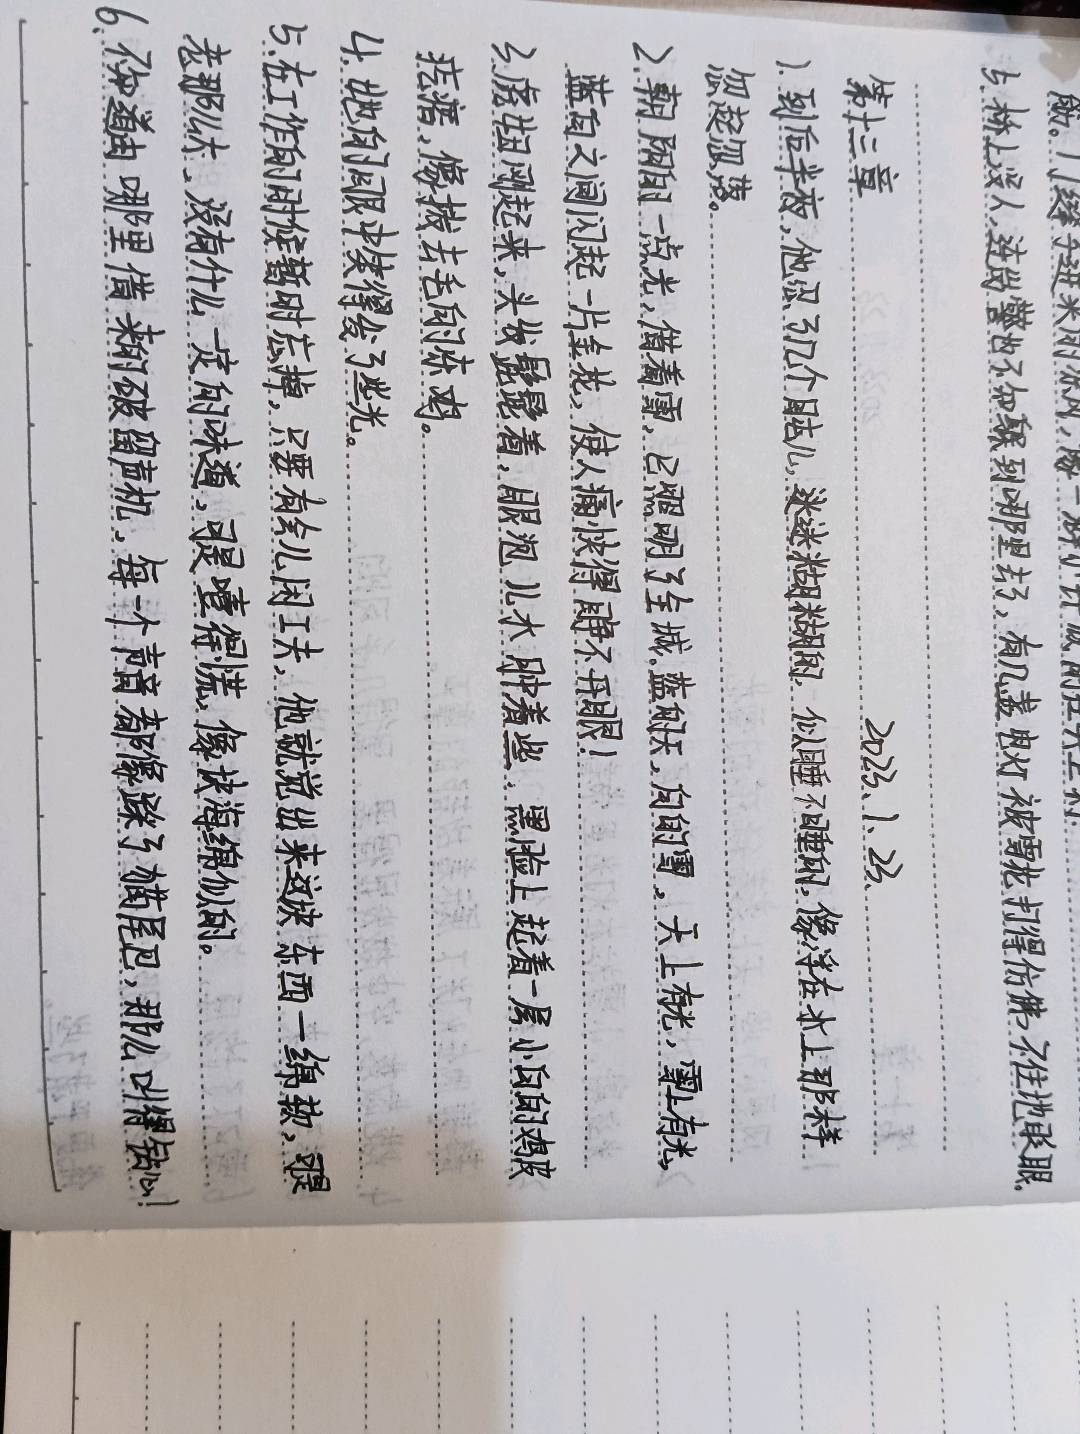 5.桥上没人,连岗警也不知躲到哪里去了,有几盏电灯被雪花打得仿佛不住地眨眼。
第十三章
2023.1.23.
1.到后半夜,他忍了几个盹儿,迷迷糊糊的,似睡不睡的,像浮在水上那样
忽起忽落。
2.朝阳的一点光,借着雪,已照明了全城。蓝的天,白的雪,天上有光,雪上有光,
蓝白之间闪起一片金花,使人痛快得睁不开眼!
3.虎妞刚起来,头发髭髭着,眼泡儿水肿着些,黑脸上起着一层小白的鸡皮
疙瘩,像拔去毛的冻鸡。
4.她的间眼中楼得发了些光。
5.在工作的时候暂时忘掉,只要有会儿闲工夫,他就觉出来这块东西——绵软,可是
老那么大,没有什么一定的味道,可是噎得慌,像块海绵似的。
6.不知道由哪里借来的破留声机,每一个音都像踩了猫尾巴,那么叫得钻心!